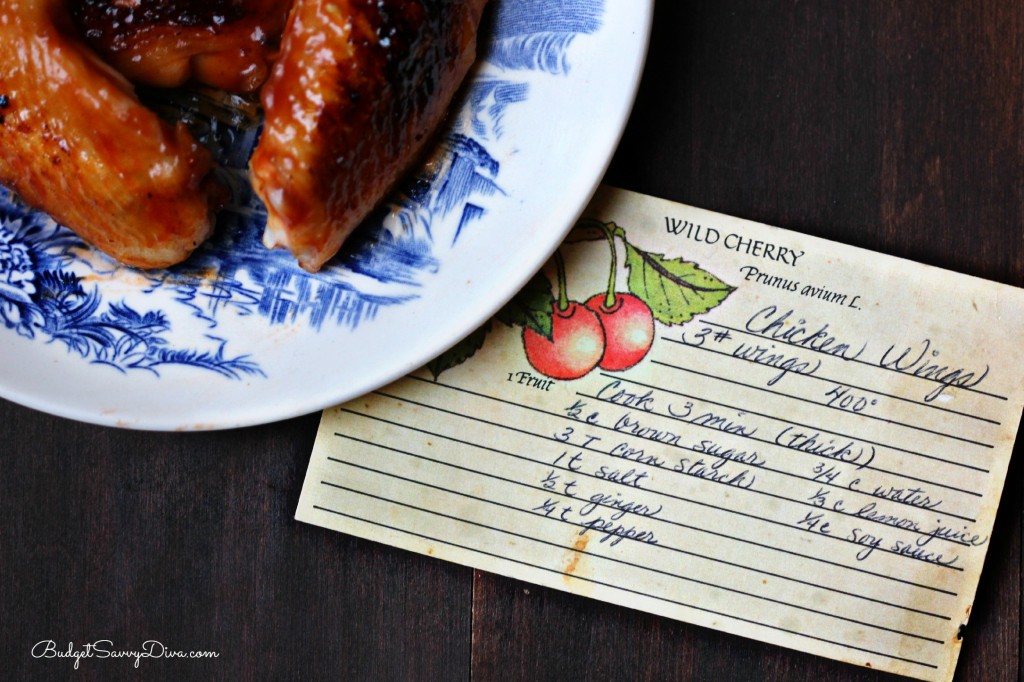 WILD CHERRY
Prunus avium L.
Chicken Wings
3# wings 400°
1 Fruit
Cook 3 min (thick)
½ c brown sugar ¾ c water
3 T corn starch ⅓ c lemon juice
1 t salt ¼ c soy sauce
½ t ginger
¼ t pepper
BudgetSavvyDiva.com